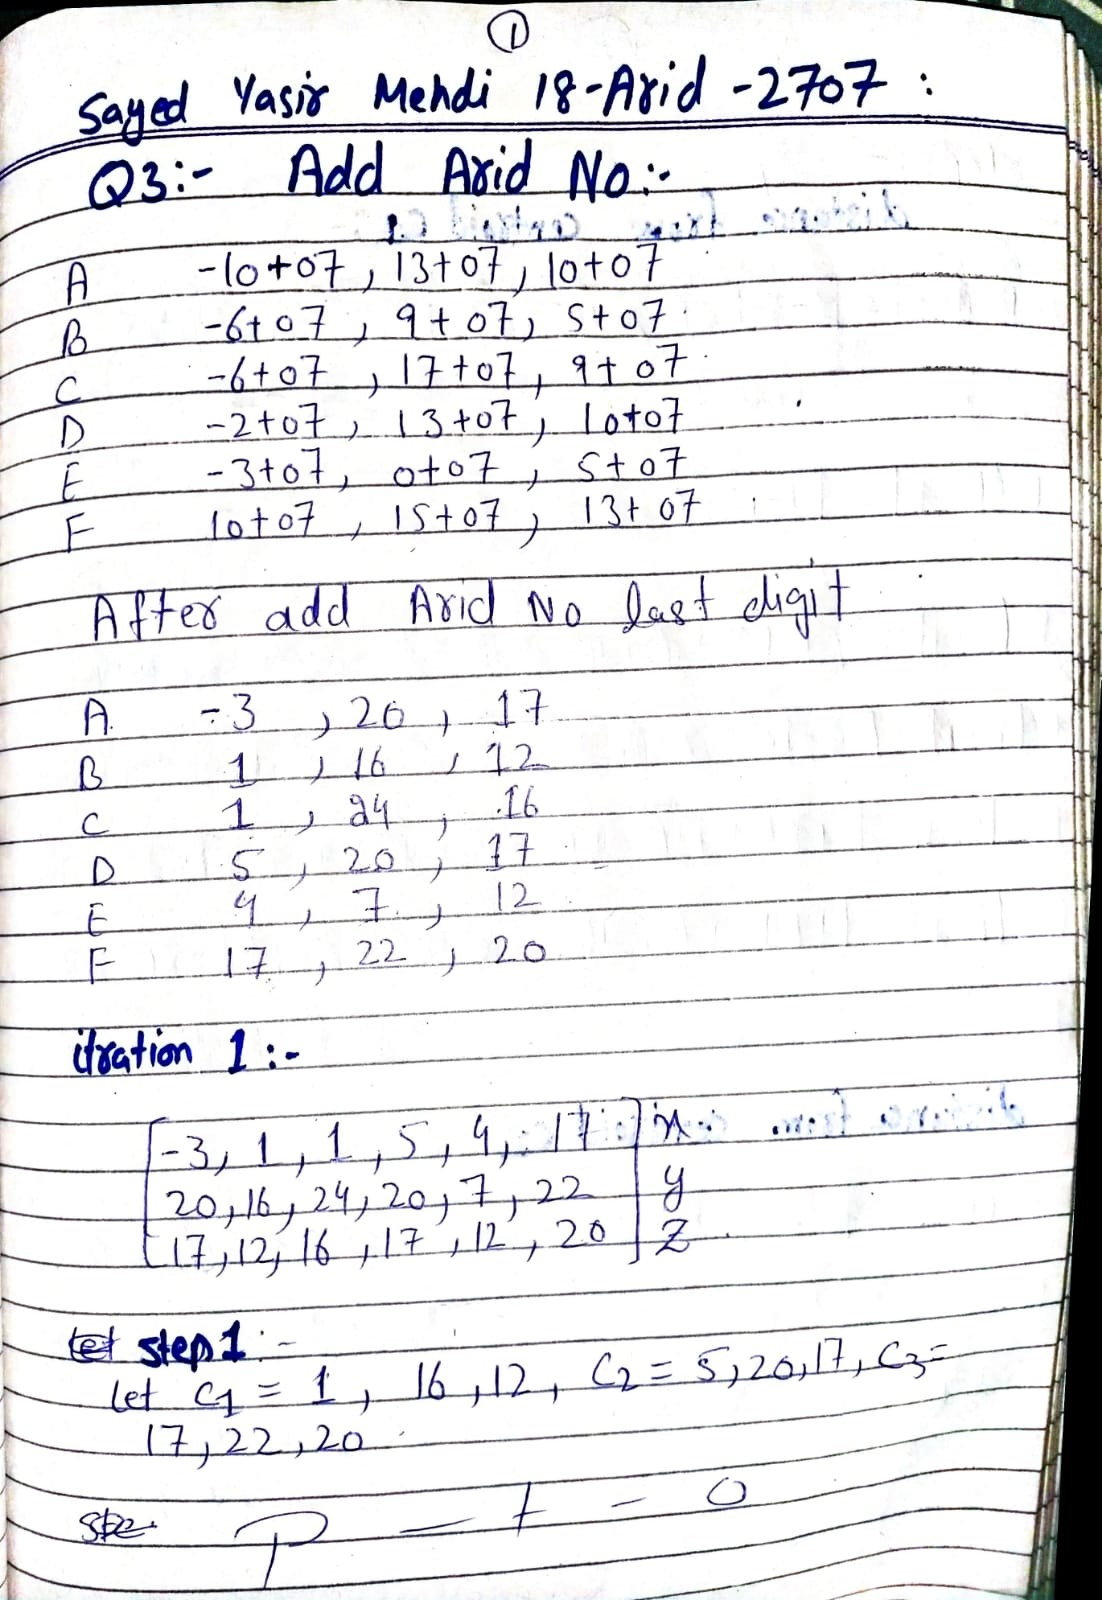 1
Sayed Yasir Mehdi 18-Arid-2707:
Q3:- Add Arid No:-
A -10+07, 13+07, 10+07
B -6+07, 9+07, 5+07
C -6+07, 17+07, 9+07
D -2+07, 13+07, 10+07
E -3+07, 0+07, 5+07
F 10+07, 15+07, 13+07
After add Arid No last digit
A. -3, 20, 17
B 1, 16, 12
C 1, 24, 16
D 5, 20, 17
E 4, 7, 12
F 17, 22, 20
itration 1:-
-3, 1, 1, 5, 4, 17 x
20, 16, 24, 20, 7, 22 y
17, 12, 16, 17, 12, 20 z
step 1:-
let C1 = 1, 16, 12, C2 = 5, 20, 17, C3=
17, 22, 20
P - t - 0